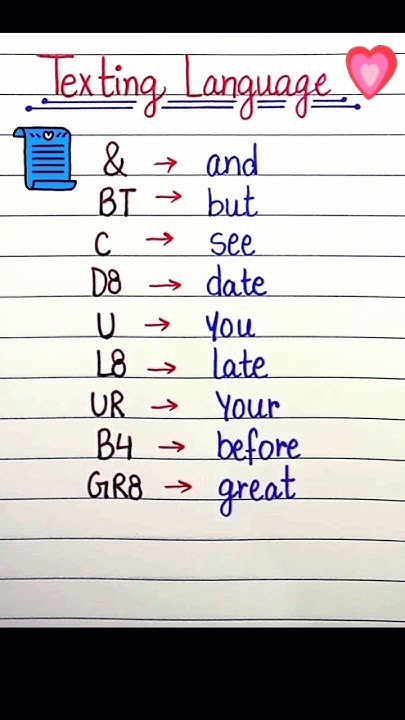 Texting Language
& → and
BT → but
C → see
D8 → date
U → You
L8 → late
UR → Your
B4 → before
GR8 → great